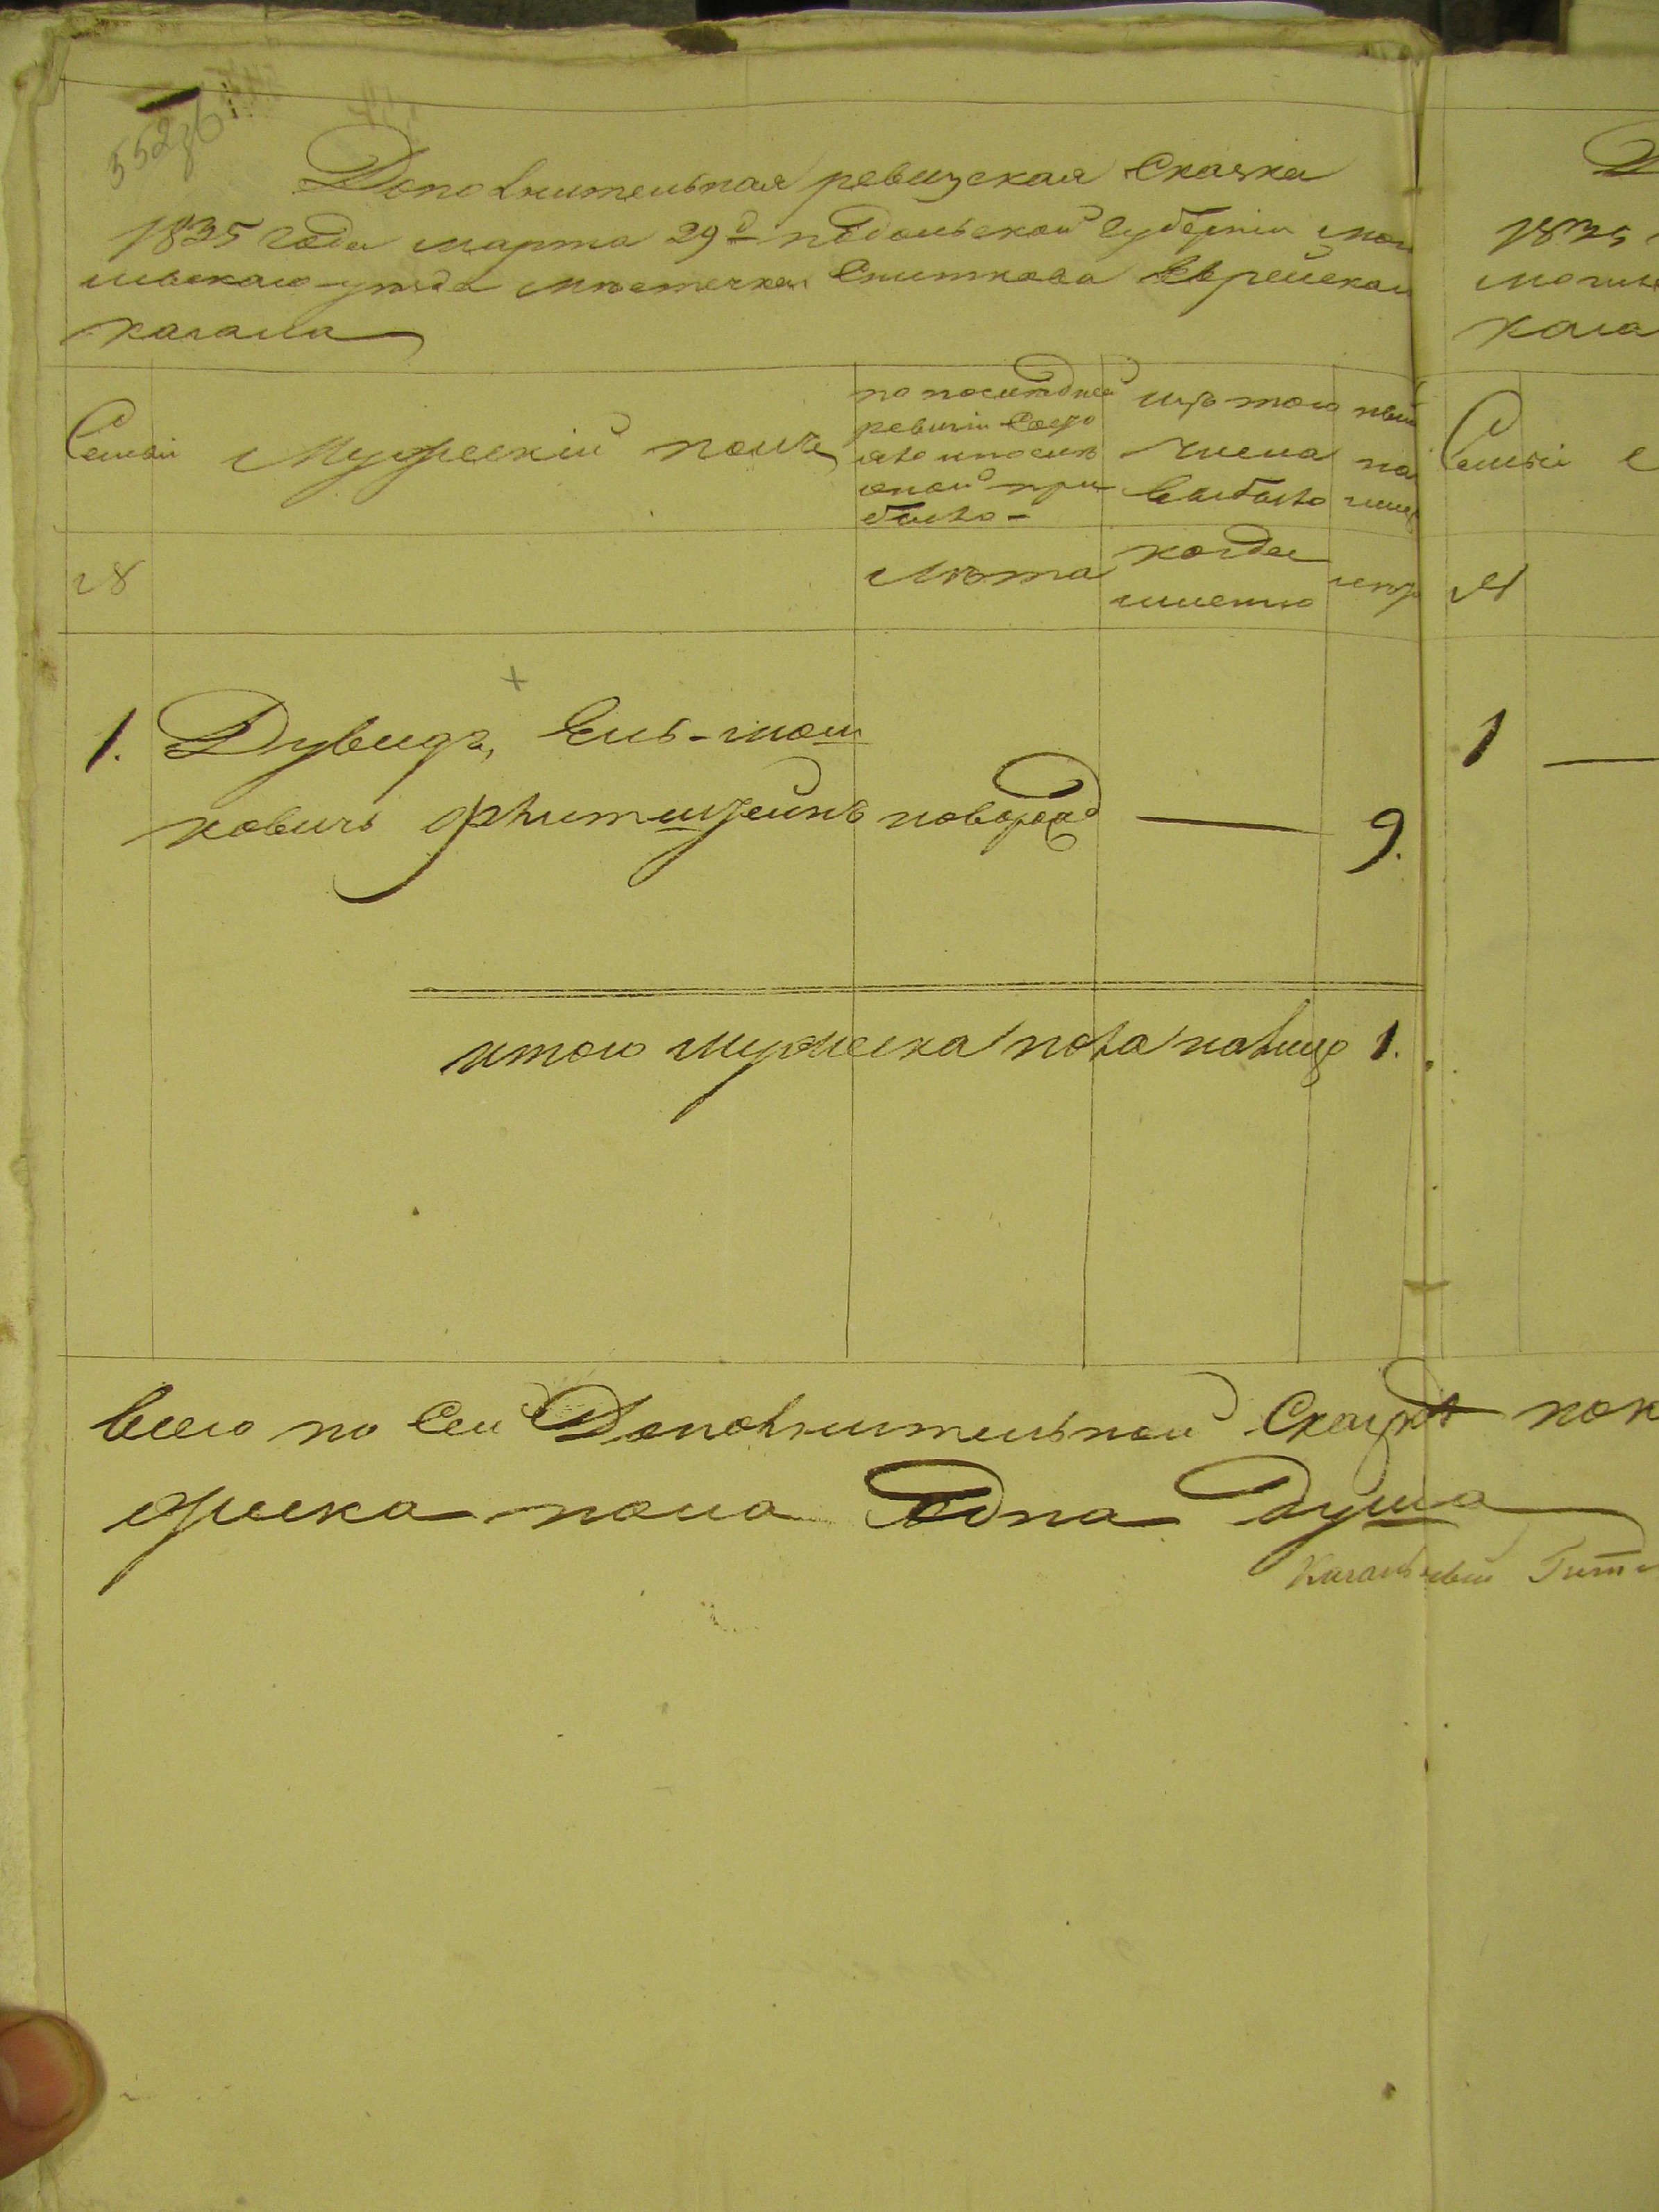 552 об
Дополнительная ревизская Сказка
1835 года марта 29д подольской губерніи мог
ильскаго уезда местечка Сниткова Еврейскаго
кагала
Семьи
Мужескій полъ
по последней
ревизіи состо
яло и после
оной при
было -
изъ того
числа
выбыло
ныне
на
лицо
№
лета
когда
именно
лета
1. Дувидъ, Ель-мош
ковичь флитштейнъ новород — 9.
итого мужеска пола налицо 1.
всего по сей Дополнительной Сказке
жеска пола Одна Душа
Кагальный
1835
могил
кага
Семьи
№
1 —